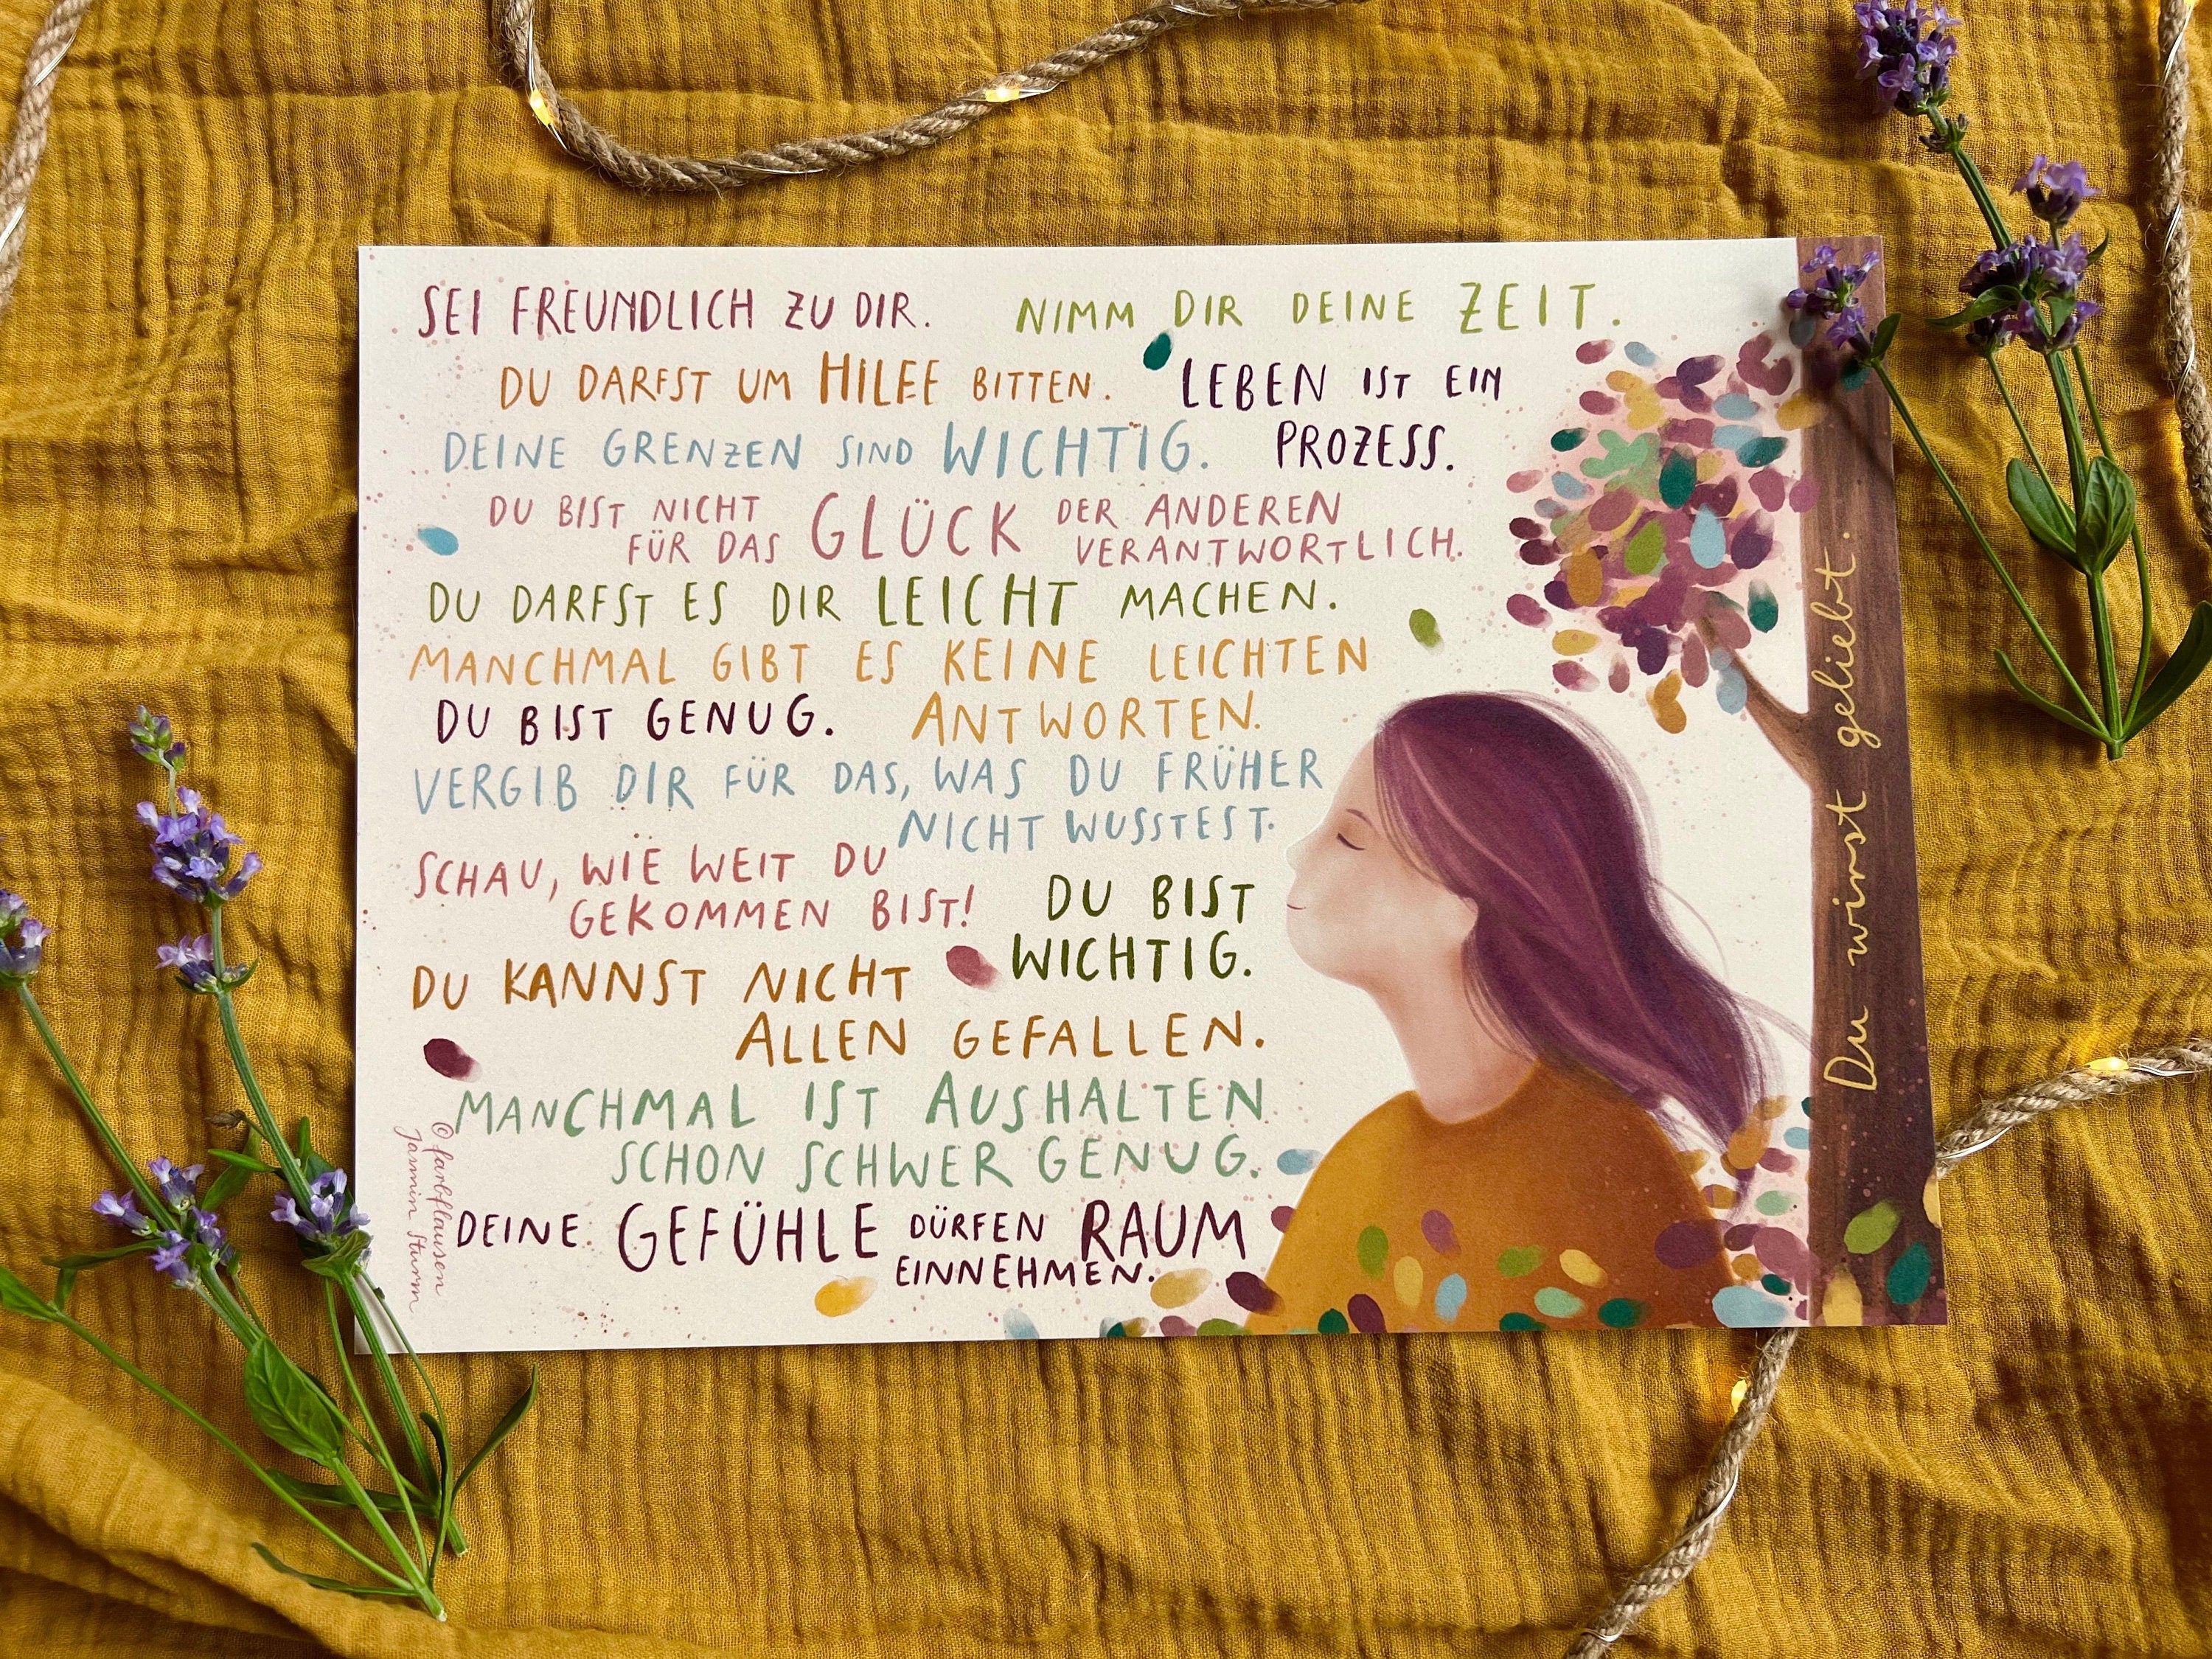 SEI FREUNDLICH ZU DIR.
NIMM DIR DEINE ZEIT.
DU DARFST UM HILFE BITTEN.
LEBEN IST EIN
PROZESS.
DEINE GRENZEN SIND WICHTIG.
DU BIST NICHT
FÜR DAS GLÜCK DER ANDEREN
VERANTWORTLICH.
DU DARFST ES DIR LEICHT MACHEN.
MANCHMAL GIBT ES KEINE LEICHTEN
ANTWORTEN.
DU BIST GENUG.
VERGIB DIR FÜR DAS, WAS DU FRÜHER
NICHT WUSSTEST.
SCHAU, WIE WEIT DU
GEKOMMEN BIST!
DU BIST
WICHTIG.
DU KANNST NICHT
ALLEN GEFALLEN.
MANCHMAL IST AUSHALTEN
SCHON SCHWER GENUG.
DEINE GEFÜHLE DÜRFEN RAUM
EINNEHMEN.
Du wirst geliebt.
© farbflausen
Jasmin Sturm